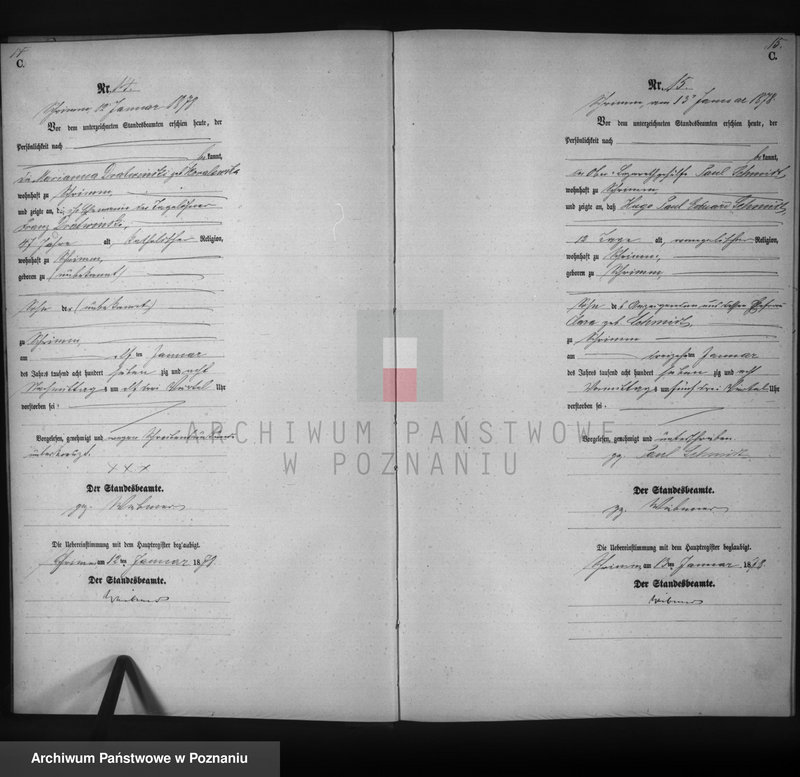 14
C.
Nr. 14.
Schrimm, 12 Januar 1878
Vor dem unterzeichneten Standesbeamten erschien heute, der
Persönlichkeit nach
bekannt,
die Marianna geb. Kowalewska
wohnhaft zu Schrimm,
und zeigte an, daß Ehemann der Tagelöhner
Franz
47 Jahre alt, katholischer Religion,
wohnhaft zu Schrimm,
geboren zu (unbekannt)
Sohn der (unbekannt)
zu Schrimm,
am elften Januar
des Jahres tausend acht hundert sieben zig und acht
Nachmittag s um elf drei Viertel Uhr
verstorben sei.
Vorgelesen, genehmigt und wegen
unterkreuzt.
+ + +
Der Standesbeamte.
gz.
Die Uebereinstimmung mit dem Hauptregister beglaubigt.
Schrimm am 12ten Januar 18
Der Standesbeamte.
15.
C.
Nr. 15.
Schrimm, am 13 Januar 1878.
Vor dem unterzeichneten Standesbeamten erschien heute, der
Persönlichkeit nach
bekannt,
der Ober Lazarethgehülfe Paul Schmidt,
wohnhaft zu Schrimm,
und zeigte an, daß Hugo Paul Eduard Schmidt,
12 Tage alt, evangelischer Religion,
wohnhaft zu Schrimm,
geboren zu Schrimm,
Sohn des Anzeigenden und dessen Ehefrau
Clara geb. Schmidt,
zu Schrimm
am Januar
des Jahres tausend acht hundert sieben zig und acht
Vormittag s um fünf drei Viertel Uhr
verstorben sei.
Vorgelesen, genehmigt und unterschrieben
gz. Paul Schmidt
Der Standesbeamte.
gz.
Die Uebereinstimmung mit dem Hauptregister beglaubigt.
Schrimm, am 13ten Januar 18
Der Standesbeamte.
ARCHIWUM PAŃSTWOWE
W POZNANIU
Archiwum Państwowe w Poznaniu